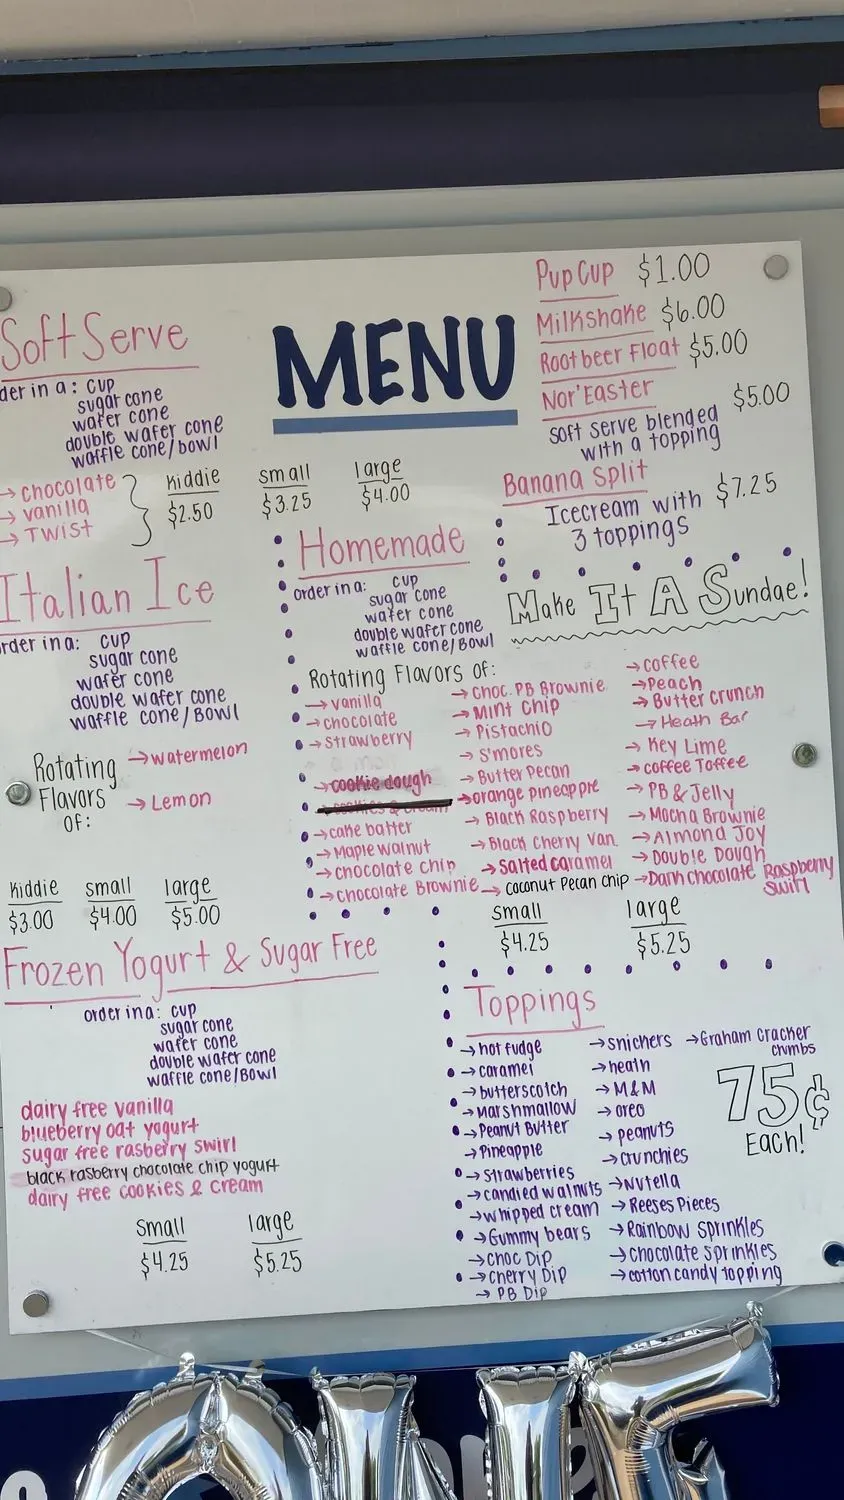 MENU
Soft Serve
der in a: cup
sugar cone
wafer cone
double wafer cone
waffle cone/bowl
→ chocolate
→ vanilla
→ Twist
Kiddie
$2.50
small
$3.25
large
$4.00
Pup Cup $1.00
Milkshake $6.00
Rootbeer Float $5.00
Nor'Easter $5.00
soft serve blended
with a topping
Banana Split $7.25
Icecream with
3 toppings
Make It A Sundae!
Italian Ice
rder in a: cup
sugar cone
wafer cone
double wafer cone
waffle cone/Bowl
Rotating
Flavors
of:
→ watermelon
→ Lemon
Kiddie
$3.00
small
$4.00
large
$5.00
Homemade
order in a: cup
sugar cone
wafer cone
double wafer cone
waffle cone/Bowl
Rotating Flavors of:
→ vanilla
→ chocolate
→ strawberry
→ cookie dough
→ cookies & cream
→ cake batter
→ Maple walnut
→ chocolate chip
→ chocolate Brownie
→ choc. PB Brownie
→ Mint chip
→ Pistachio
→ S'mores
→ Butter Pecan
→ orange pineapple
→ Black Raspberry
→ Black Cherry Van.
→ Salted caramel
→ coconut Pecan Chip
→ coffee
→ Peach
→ Butter crunch
→ Heath Bar
→ Key Lime
→ coffee Toffee
→ PB & Jelly
→ Mocha Brownie
→ Almond Joy
→ Double Dough
→ Dark chocolate Raspberry
swirl
small
$4.25
large
$5.25
Frozen Yogurt & Sugar Free
order in a: cup
sugar cone
wafer cone
double wafer cone
waffle cone/Bowl
dairy free vanilla
blueberry oat yogurt
sugar free rasberry swirl
black rasberry chocolate chip yogurt
dairy free cookies & cream
small
$4.25
large
$5.25
Toppings
→ hot fudge
→ caramel
→ butterscotch
→ Marshmallow
→ Peanut Butter
→ Pineapple
→ strawberries
→ candied walnuts
→ whipped cream
→ Gummy bears
→ Choc Dip
→ Cherry Dip
→ PB Dip
→ snickers
→ heath
→ M&M
→ oreo
→ peanuts
→ crunchies
→ Nutella
→ Reeses Pieces
→ Rainbow sprinkles
→ chocolate sprinkles
→ cotton candy topping
→ Graham cracker
crumbs
75¢
Each!